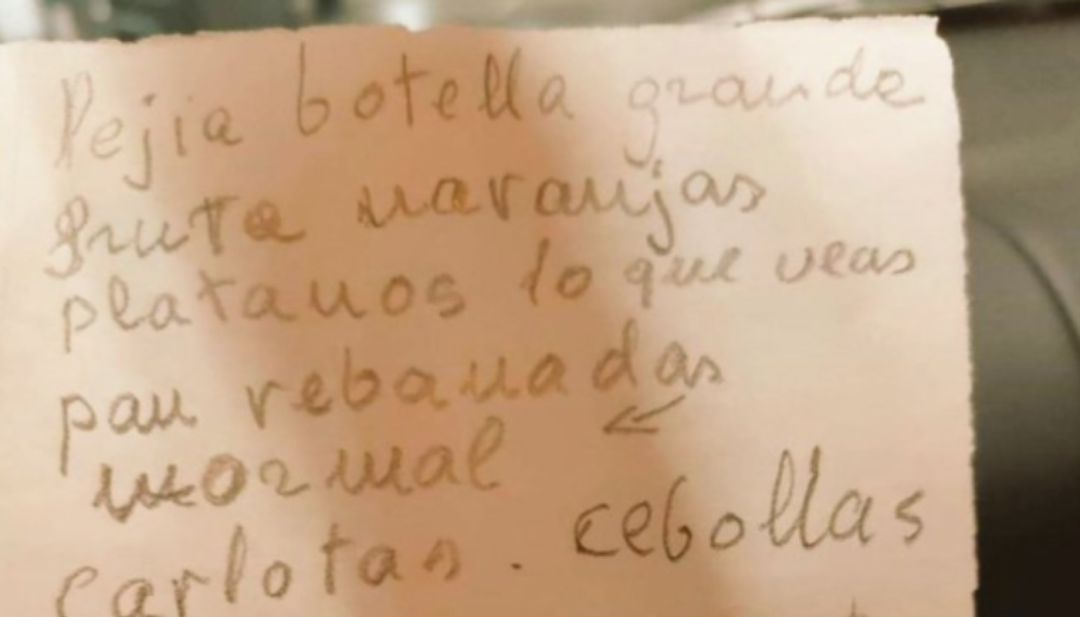 Pejia botella grande
fruta naranjas
platanos lo que veas
pan rebanadas
normal
carlotas. cebollas